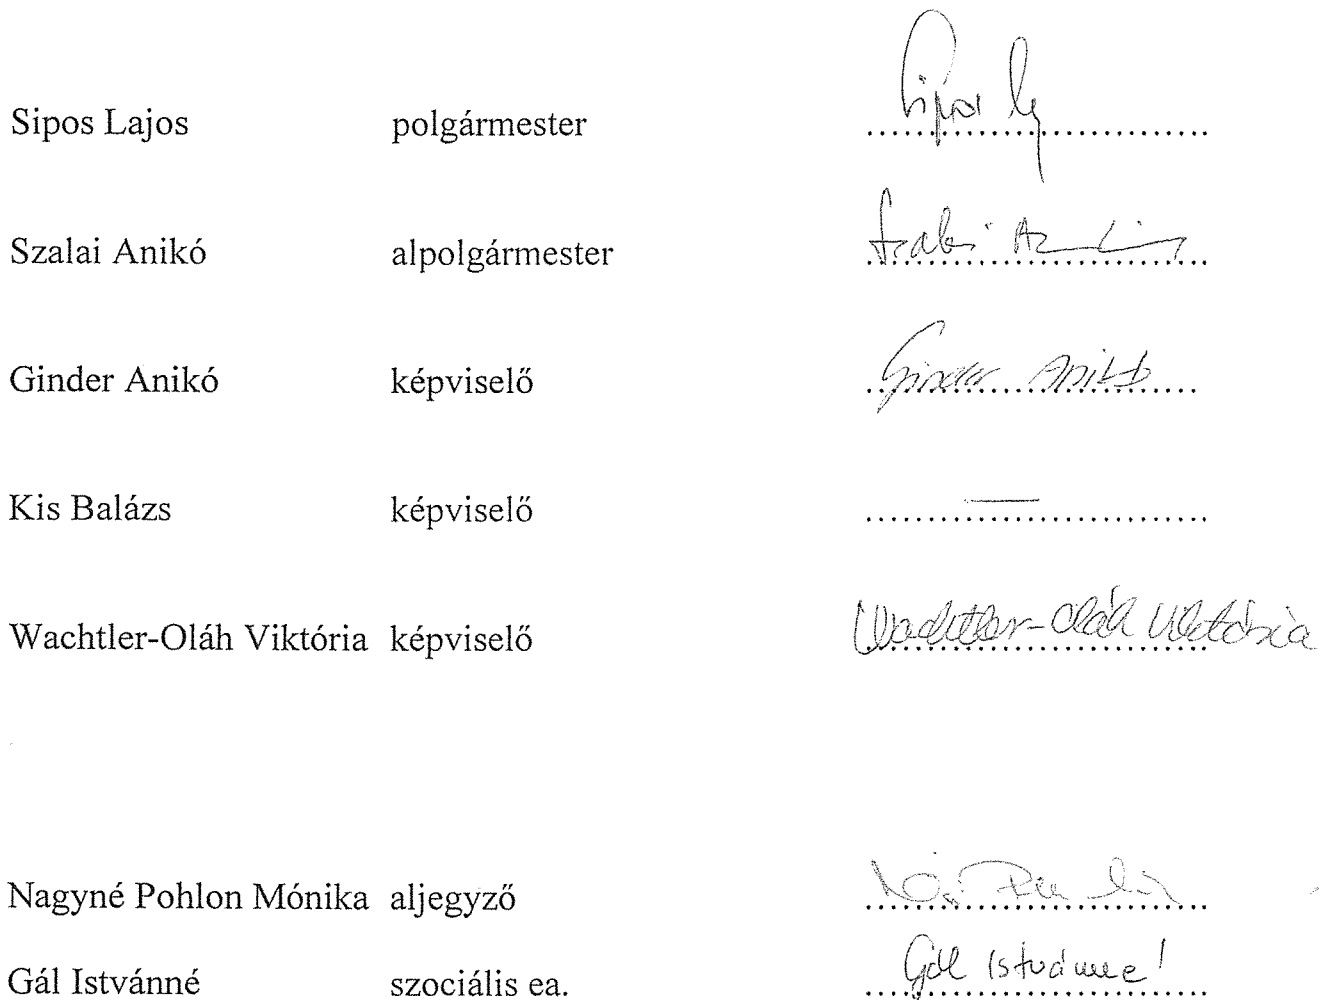 Sipos Lajos polgármester Sipos L
Szalai Anikó alpolgármester Szalai
Ginder Anikó képviselő Ginder Anikó
Kis Balázs képviselő —
Wachtler-Oláh Viktória képviselő Wachtler-Oláh Viktória
Nagyné Pohlon Mónika aljegyző
Gál Istvánné szociális ea. Gál Istvánné